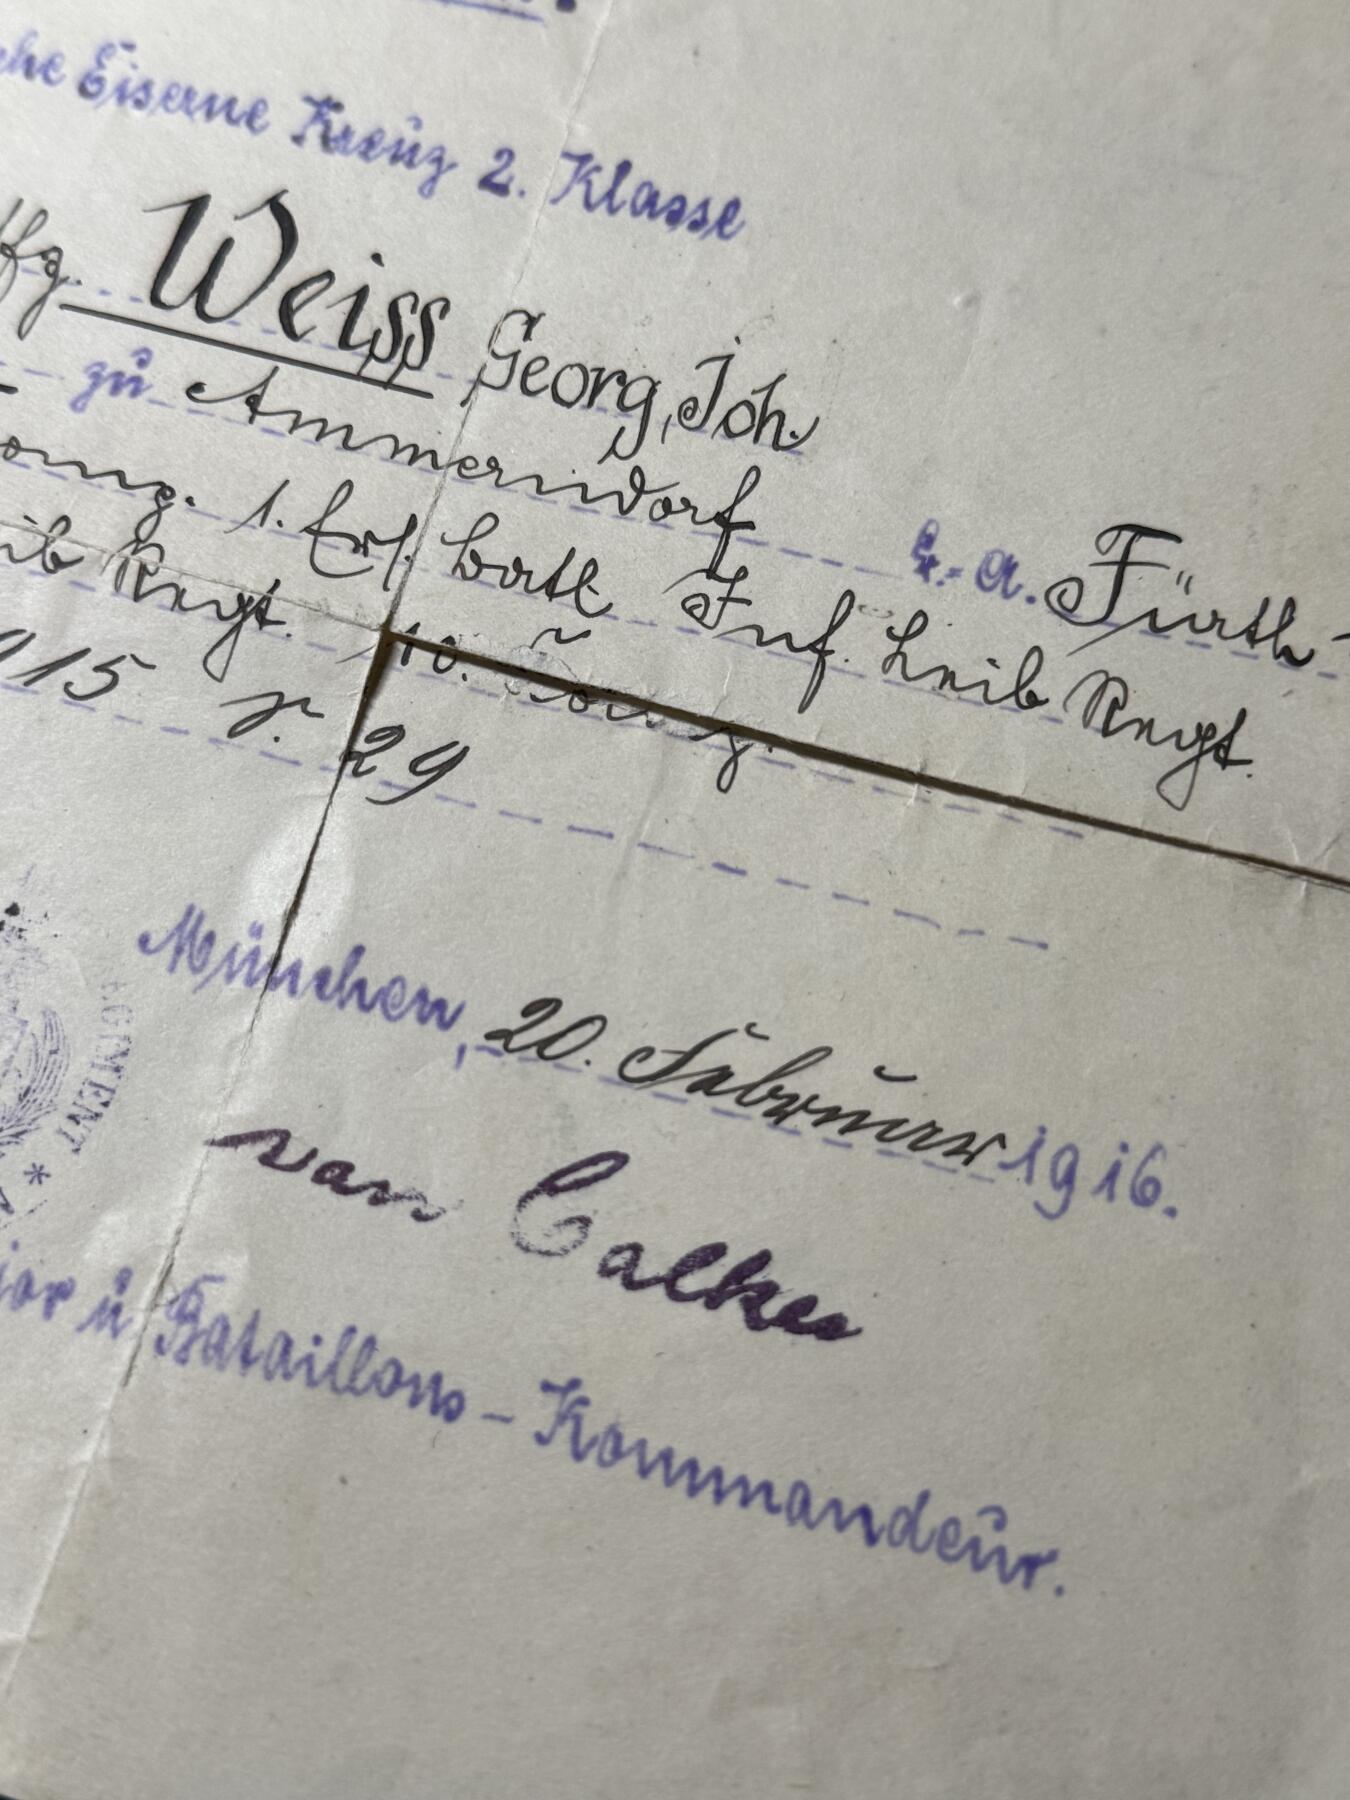 che Eiserne Kreuz 2. Klasse
ffz. Weiss Georg, Joh.
zu Ammerndorf B.-A. Fürth
omg. 1. Ers. Batl. Inf. Leib Regt.
ib Regt. 10. Komg.
915 N. 29
München, 20. Februar 1916.
EGIMENT *
van Calker
jor u Bataillons-Kommandeur.